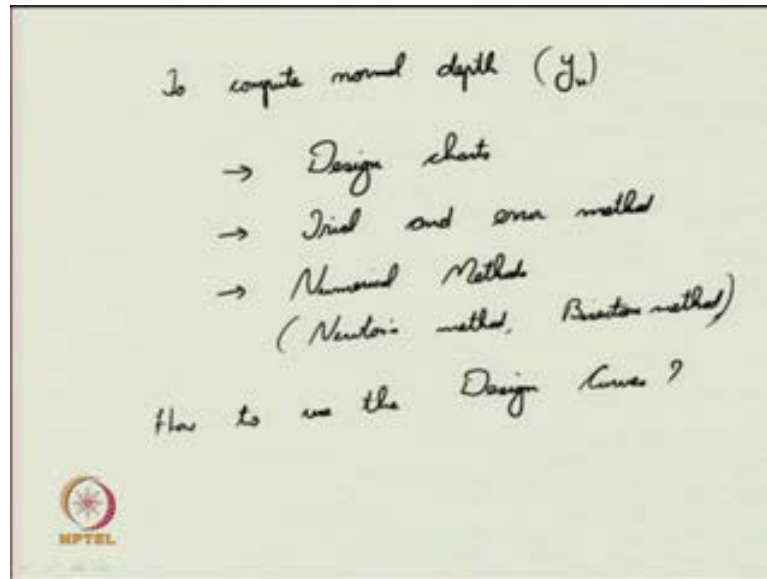 To compute normal depth (yn)
→ Design charts
→ Trial and error method
→ Numerical Methods
(Newton's method, Bisection method)
How to use the Design Curves ?
NPTEL